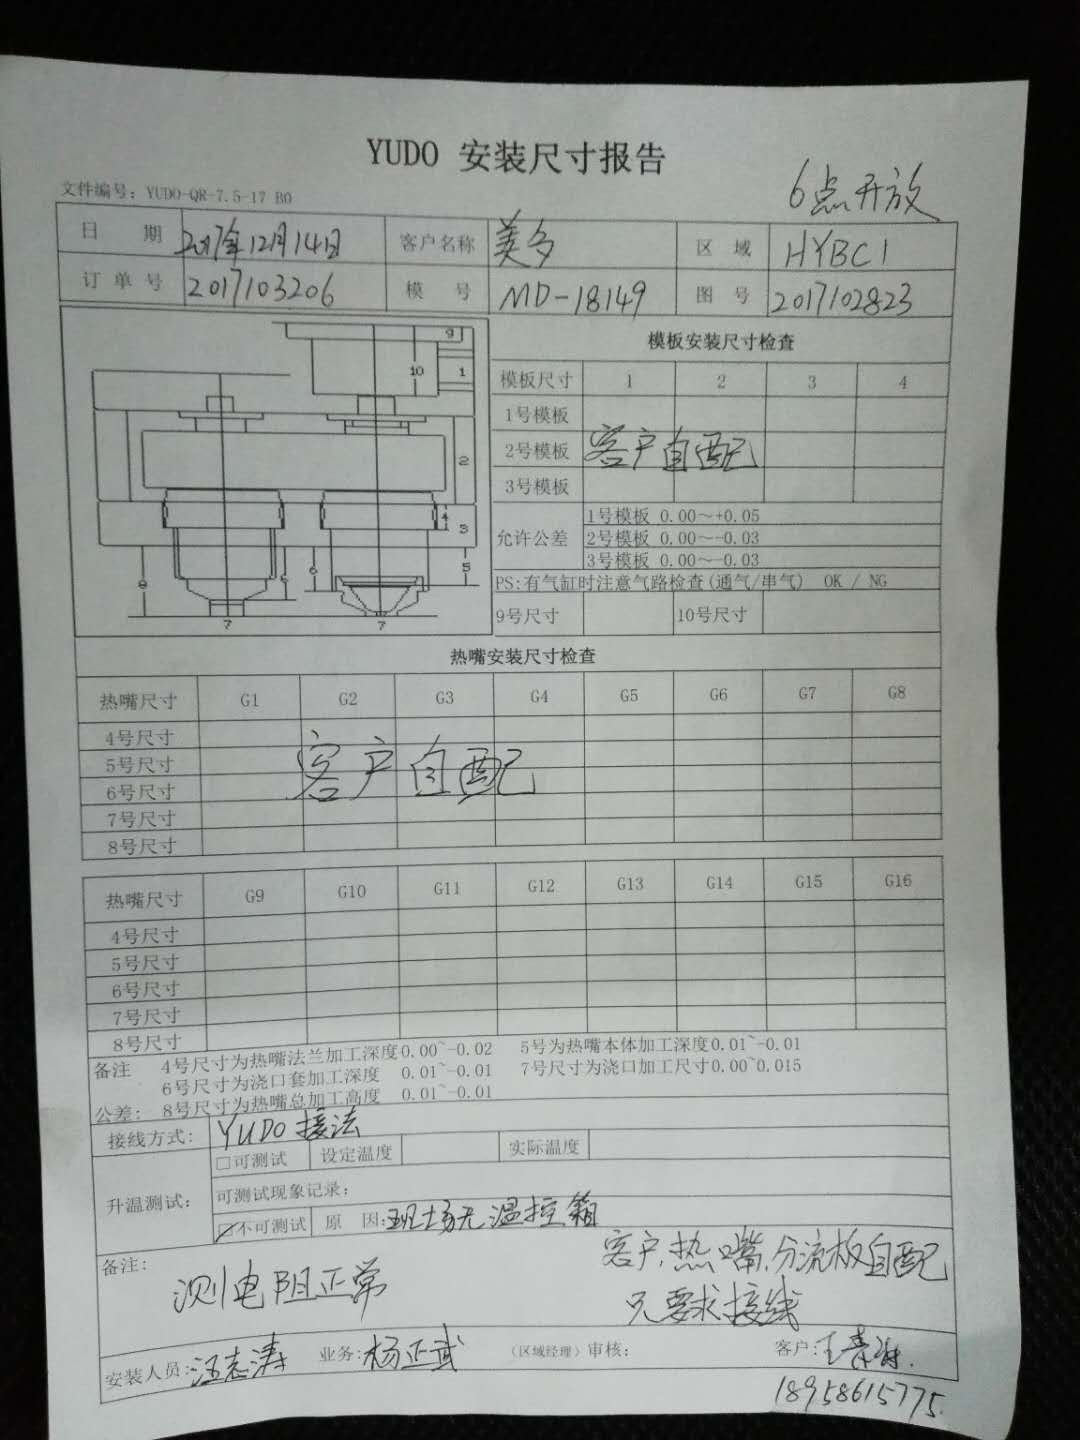 YUDO 安装尺寸报告
文件编号：YUDO-QR-7.5-17 B0
6点开放
日 期 2017年12月14日 客户名称 美多 区 域 HYBC1
订 单 号 2017103206 模 号 MD-18149 图 号 2017102823
模板安装尺寸检查
模板尺寸 1 2 3 4
1号模板
2号模板 客户自配
3号模板
允许公差 1号模板 0.00～+0.05
2号模板 0.00～-0.03
3号模板 0.00～-0.03
PS:有气缸时注意气路检查(通气/串气) OK / NG
9号尺寸 10号尺寸
9
10 1
2
4 3
8 6 6 5
7 7
热嘴安装尺寸检查
热嘴尺寸 G1 G2 G3 G4 G5 G6 G7 G8
4号尺寸
5号尺寸
6号尺寸 客户自配
7号尺寸
8号尺寸
热嘴尺寸 G9 G10 G11 G12 G13 G14 G15 G16
4号尺寸
5号尺寸
6号尺寸
7号尺寸
8号尺寸
备注 4号尺寸为热嘴法兰加工深度0.00~-0.02 5号为热嘴本体加工深度0.01~-0.01
6号尺寸为浇口套加工深度 0.01~-0.01 7号尺寸为浇口加工尺寸0.00~0.015
公差: 8号尺寸为热嘴总加工高度 0.01~-0.01
接线方式: YUDO接法
升温测试: □可测试 设定温度 实际温度
可测试现象记录:
☑不可测试 原 因:现场无温控箱
备注: 客户热嘴、分流板自配
测电阻正常 只要求接线
安装人员:汪志涛 业务:杨正武 (区域经理)审核: 客户:王
18958615775